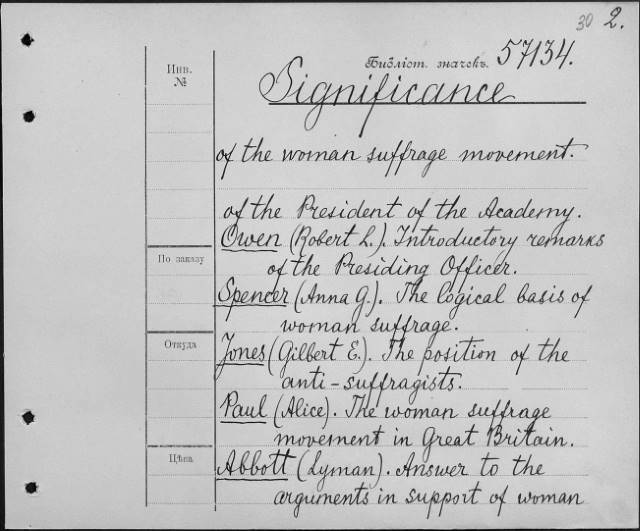 30 2.
Инв.
№
Бібліот. значекъ. 57134.
Significance
of the woman suffrage movement.
of the President of the Academy.
Owen (Robert L.). Introductory remarks
of the Presiding Officer.
По заказу
Spencer (Anna G.). The logical basis of
woman suffrage.
Откуда
Jones (Gilbert E.). The position of the
anti-suffragists.
Paul (Alice). The woman suffrage
movement in Great Britain.
Цѣна
Abbott (Lyman). Answer to the
arguments in support of woman